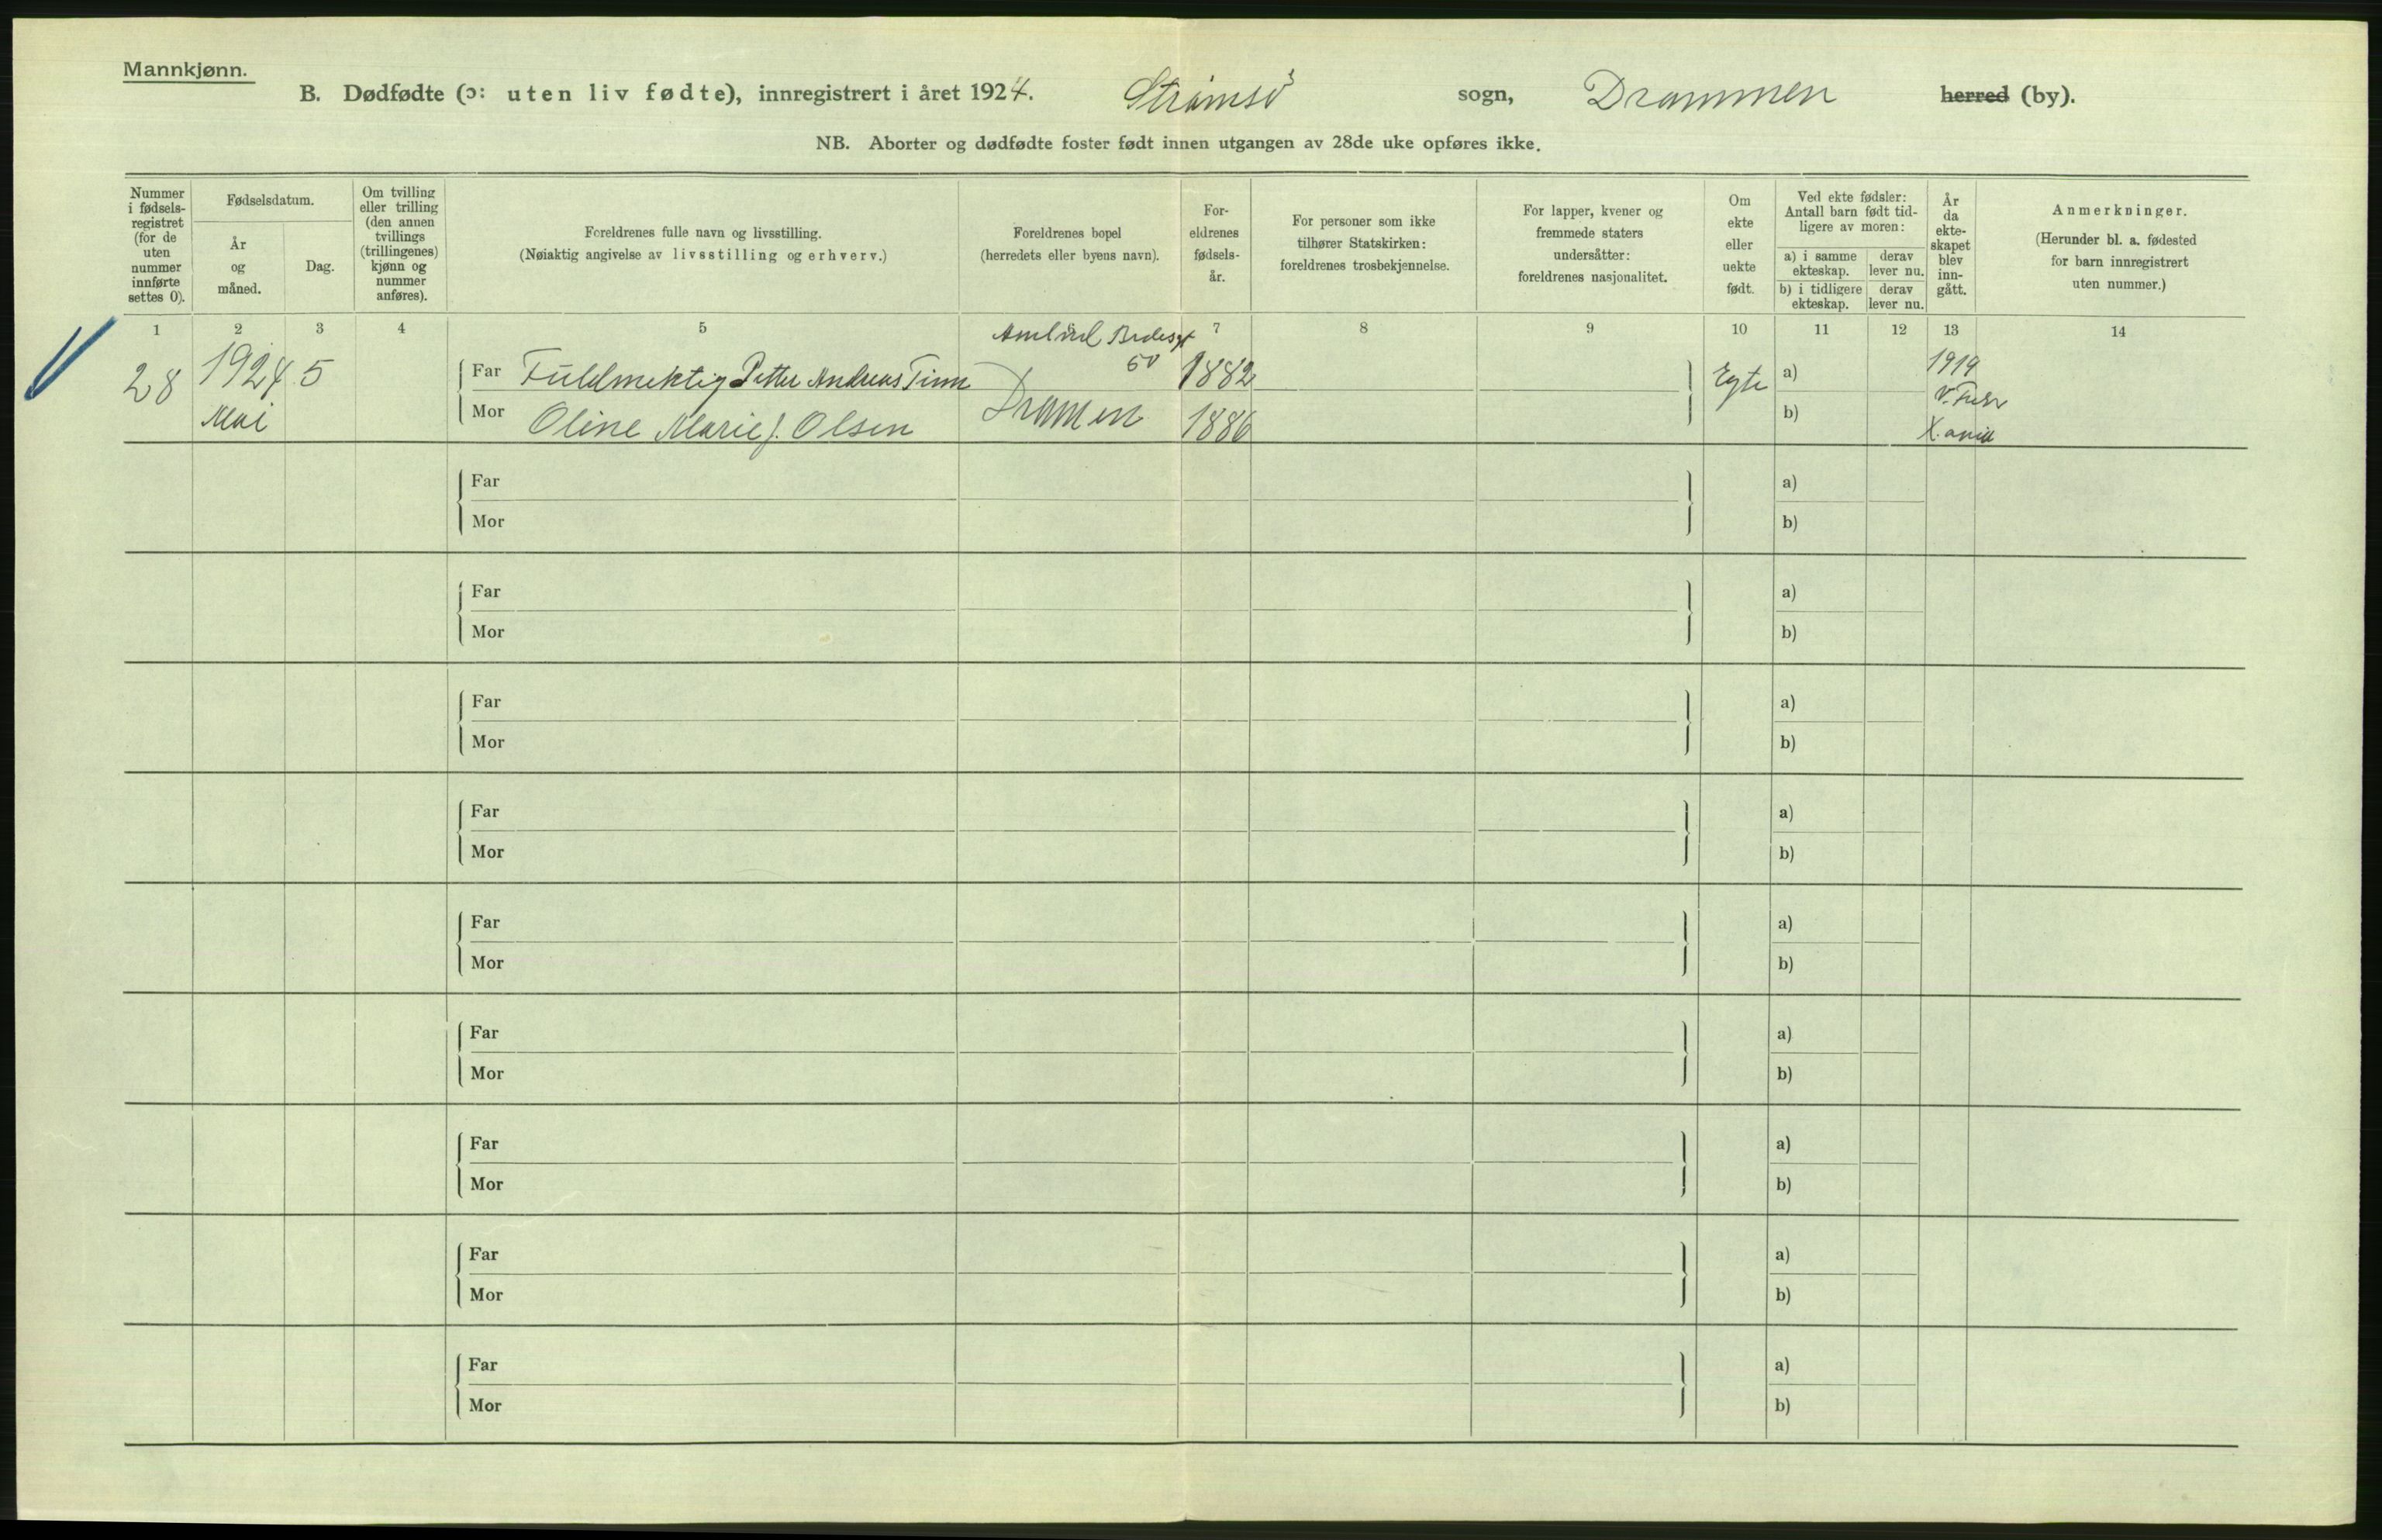 Mannkjønn.
B. Dødfødte (ɔ: uten liv fødte), innregistrert i året 1924. Strømsø sogn, Drammen herred (by).
NB. Aborter og dødfødte foster født innen utgangen av 28de uke opføres ikke.
Nummer
i fødsels-
registret
(for de
uten
nummer
innførte
settes 0).
Fødselsdatum.
År
og
måned.
Dag.
Om tvilling
eller trilling
(den annen
tvillings
(trillingenes)
kjønn og
nummer
anføres).
Foreldrenes fulle navn og livsstilling.
(Nøiaktig angivelse av livsstilling og erhverv.)
Foreldrenes bopel
(herredets eller byens navn).
For-
eldrenes
fødsels-
år.
For personer som ikke
tilhører Statskirken:
foreldrenes trosbekjennelse.
For lapper, kvener og
fremmede staters
undersåtter:
foreldrenes nasjonalitet.
Om
ekte
eller
uekte
født.
Ved ekte fødsler:
Antall barn født tid-
ligere av moren:
a) i samme
ekteskap.
derav
lever nu.
b) i tidligere
ekteskap.
derav
lever nu.
År
da
ekte-
skapet
blev
inn-
gått.
Anmerkninger.
(Herunder bl. a. fødested
for barn innregistrert
uten nummer.)
1 2 3 4 5 7 8 9 10 11 12 13 14
28 1924 5 Far Fuldmektig Petter Andreas 50 1882 Egte a) 1919
Mai Mor Oline Marie f. Olsen Dramen 1886 b)
Far a)
Mor b)
Far a)
Mor b)
Far a)
Mor b)
Far a)
Mor b)
Far a)
Mor b)
Far a)
Mor b)
Far a)
Mor b)
Far a)
Mor b)
Far a)
Mor b)